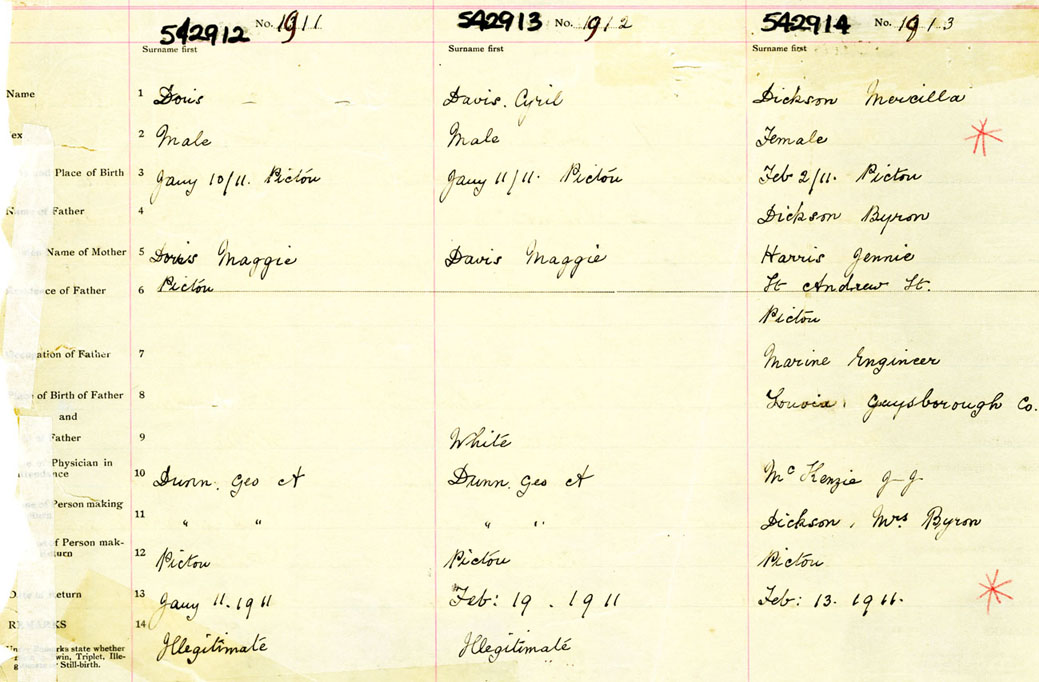 542912 No. 1911 542913 No. 1912 542914 No. 1913
Surname first Surname first Surname first
Name 1 Doris — — Davis. Cyril Dickson Mercilla
ex 2 Male Male Female
Place of Birth 3 Jany 10/11. Pictou Jany 11/11. Pictou Feb 2/11. Pictou
Name of Father 4 Dickson Byron
Name of Mother 5 Maggie Davis Maggie Harris Jennie
ce of Father 6 Pictou St Andrew St.
Pictou
ation of Father 7 Marine Engineer
of Birth of Father 8 Guysborough Co.
and
Father 9 White
Physician in
10 Dunn. Geo A Dunn. Geo A McKenzie J J
of Person making
11 " " " " Dickson, Mrs Byron
of Person mak-
12 Pictou Pictou Pictou
Return 13 Jany 11. 1911 Feb: 19. 1911 Feb: 13. 1911.
REMARKS 14
Illegitimate Illegitimate
rks state whether
win, Triplet, Ille-
Still-birth.